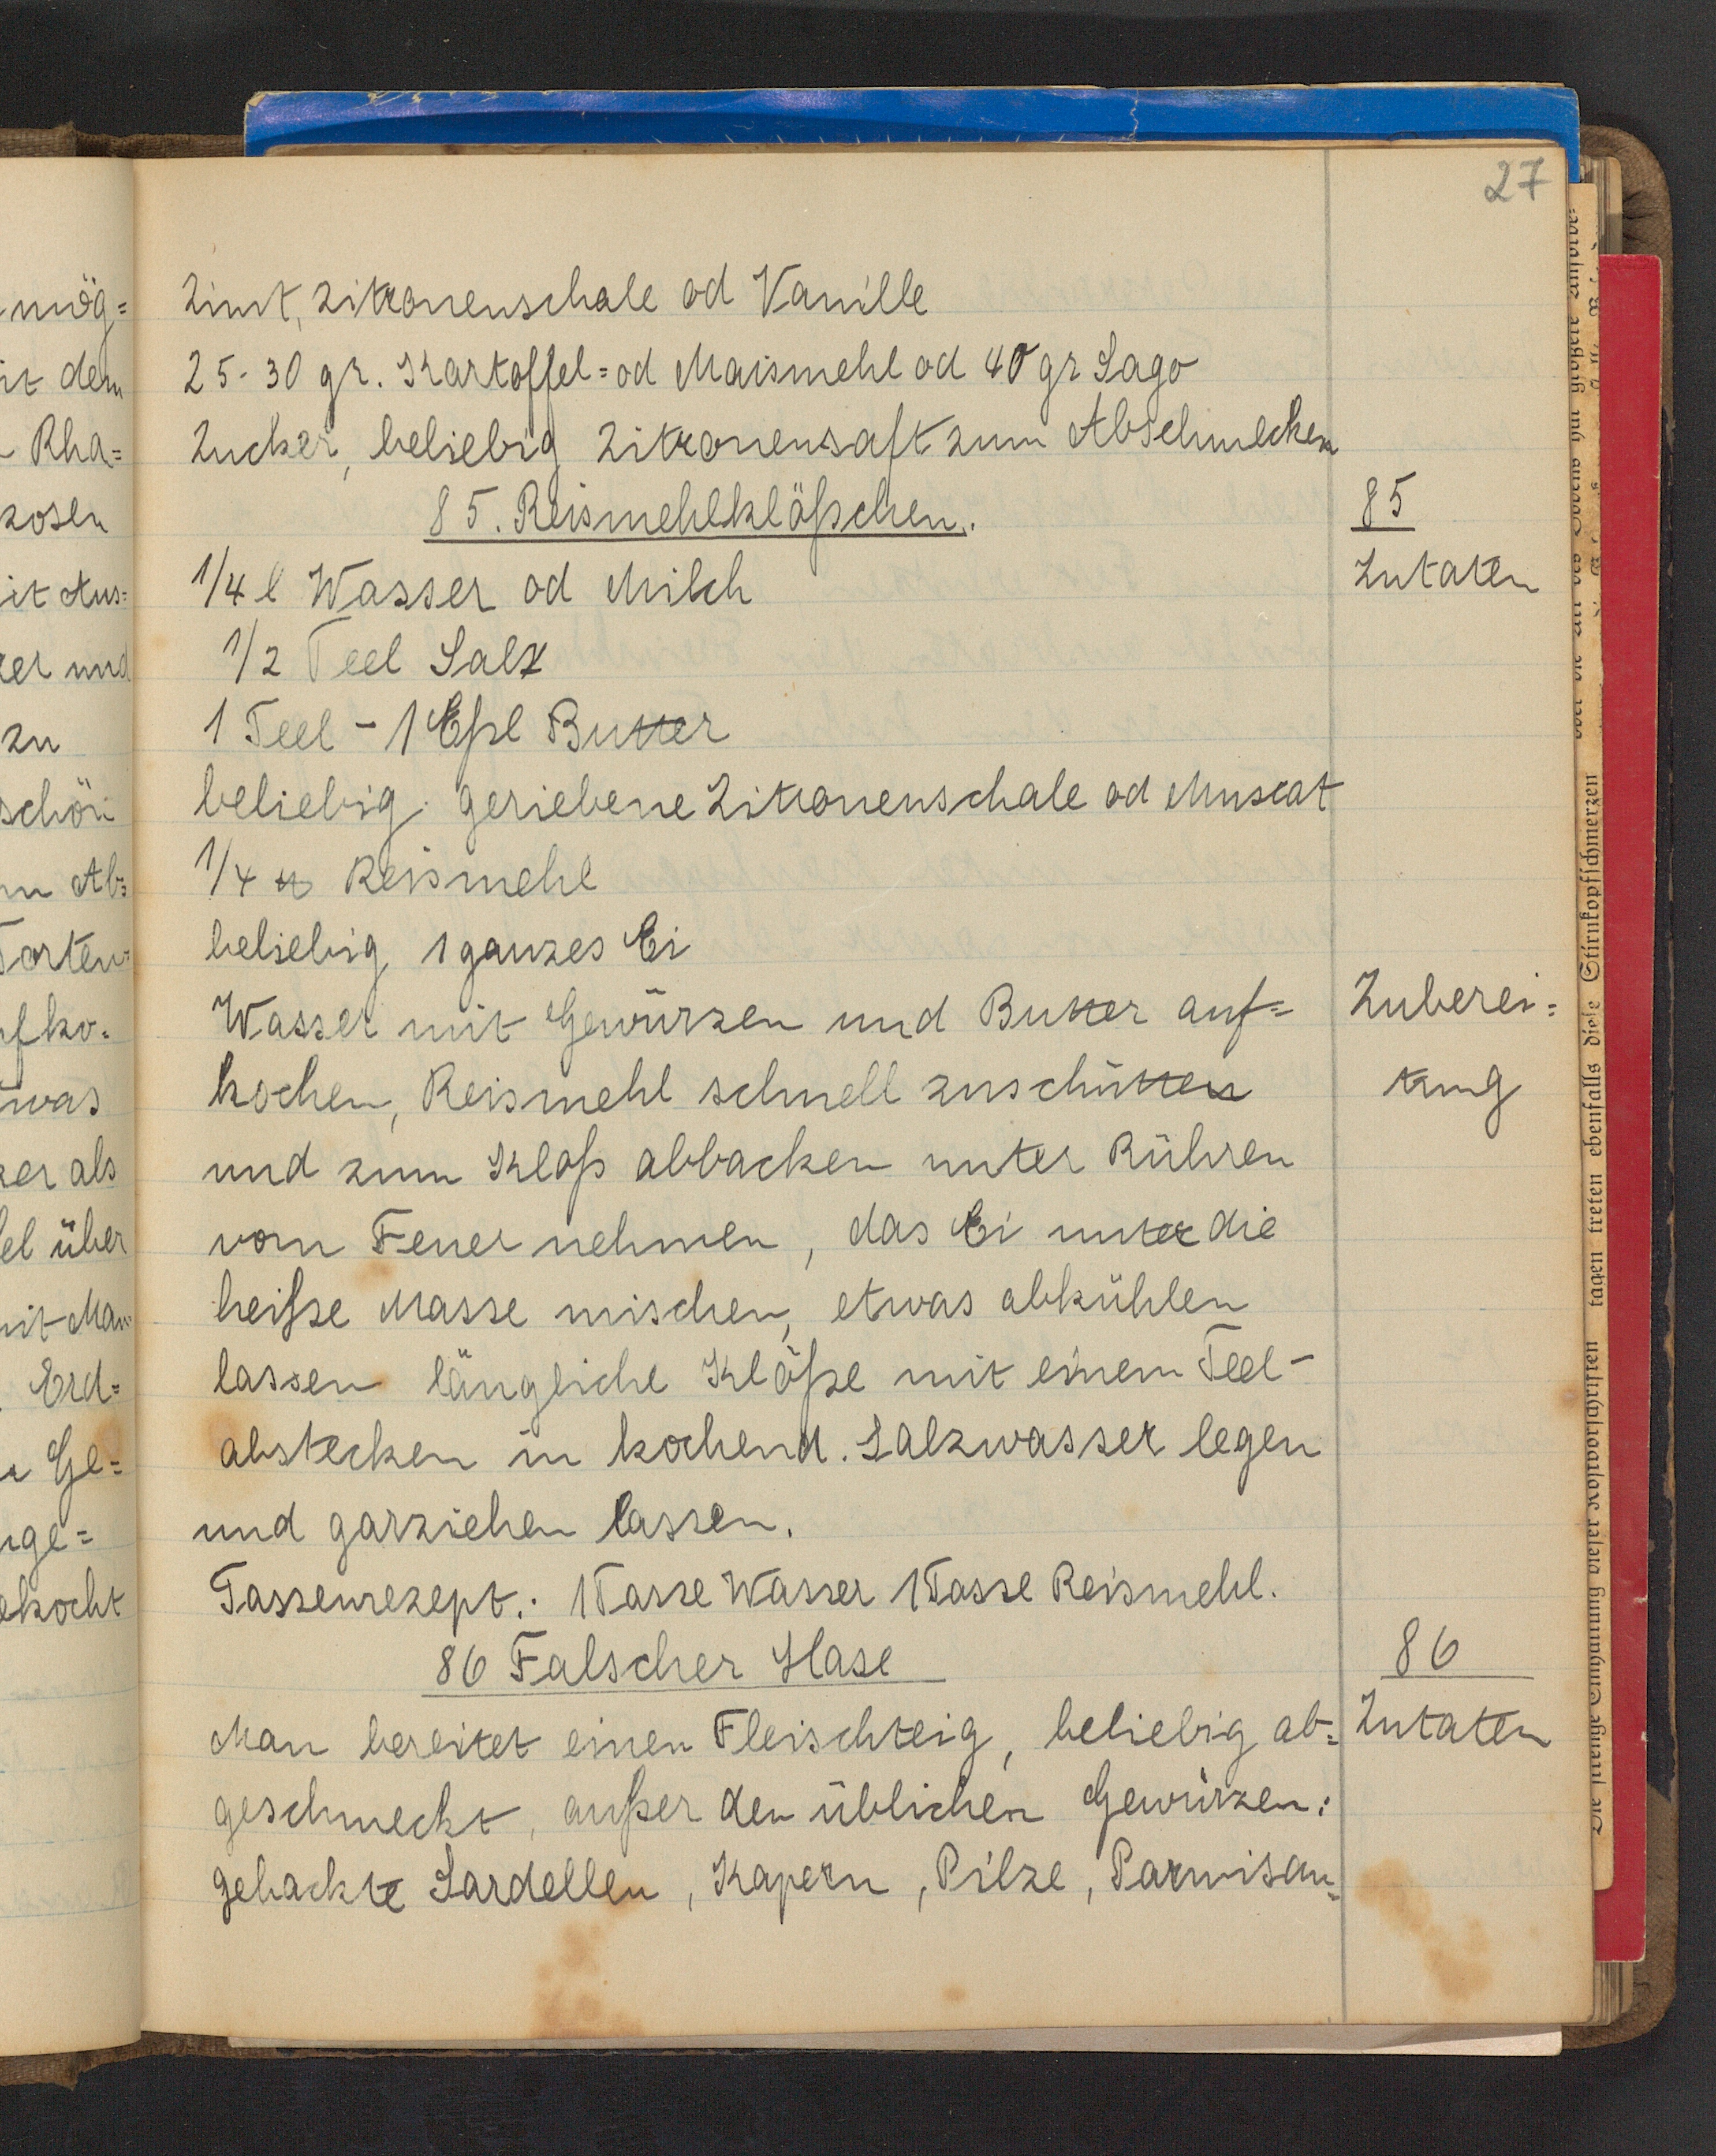 27
Zimt, Zitronenschale od Vanille
25-30 gr. Kartoffel= od Maismehl od 40 gr Sago
Zucker, beliebig Zitronensaft zum Abschmecken
85. Reismehlklößchen.
85
1/4 l Wasser od Milch
Zutaten
1/2 Teel Salz
1 Teel - 1 Eßl Butter
beliebig geriebene Zitronenschale od Muscat
1/4 ℔ Reismehl
beliebig 1 ganzes Ei
Wasser mit Gewürzen und Butter auf=
Zuberei=
kochen, Reismehl schnell zuschütten
tung
und zum Kloß abbacken unter Rühren
vom Feuer nehmen, das Ei unter die
heiße Masse mischen, etwas abkühlen
lassen längliche Klöße mit einem Teel-
abstecken in kochend. Salzwasser legen
und garziehen lassen.
Tassenrezept.: 1 Tasse Wasser 1 Tasse Reismehl.
86 Falscher Hase
86
Man bereitet einen Fleischteig, beliebig ab=
Zutaten
geschmeckt, außer den üblichen Gewürzen:
gehackte Sardellen, Kapern, Pilze, Parmisan=
mög=
it dem
Rha=
kosen
it Aus=
er und
zu
schön
Ab=
Torten=
fko=
was
er als
el über
it Man
Erd=
Ge=
ge=
ekocht
tagen treten ebenfalls diese Stirnkopfschmerzen